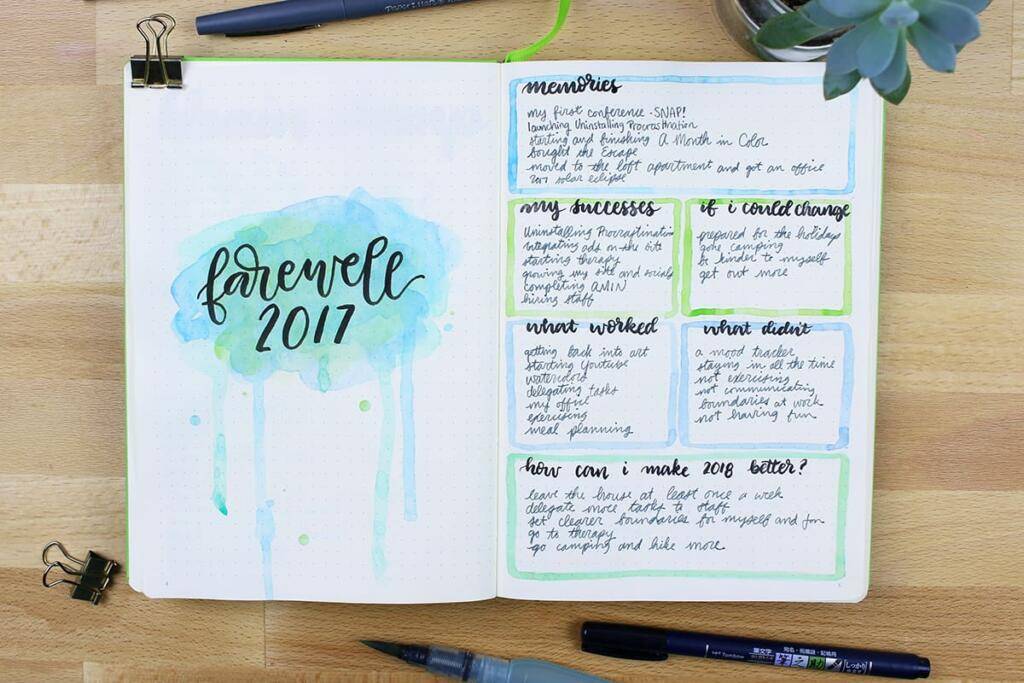 farewell
2017
memories
my first conference - SNAP!
launching Uninstalling Procrastination
starting and finishing A Month in Color
bought the Escape
moved to the loft apartment and got an office
2017 solar eclipse
my successes
Uninstalling Procrastination
integrating ads on the site
starting therapy
growing my site and socials
completing AMIN
hiring staff
if i could change
prepared for the holidays
gone camping
be kinder to myself
get out more
what worked
getting back into art
starting Youtube
watercolors
delegating tasks
my office
exercising
meal planning
what didn't
a mood tracker
staying in all the time
not exercising
not communicating
boundaries at work
not having fun
how can i make 2018 better?
leave the house at least once a week
delegate more tasks to staff
set clearer boundaries for myself and
go to therapy
go camping and hike more